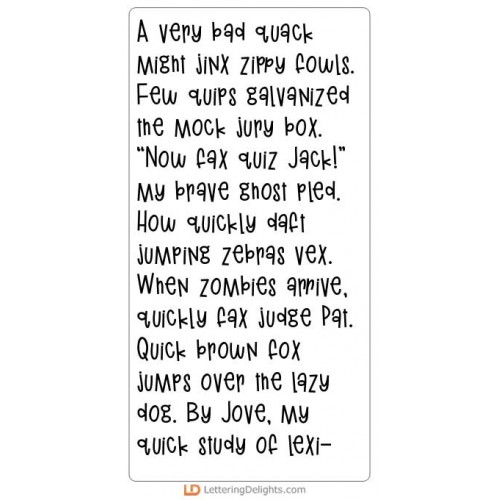 A very bad quack
might jinx zippy fowls.
Few quips galvanized
the mock jury box.
“Now fax quiz Jack!”
My brave ghost pled.
How quickly daft
jumping zebras vex.
When zombies arrive,
quickly fax judge Pat.
Quick brown fox
jumps over the lazy
dog. By Jove, my
quick study of lexi-
LD LetteringDelights.com